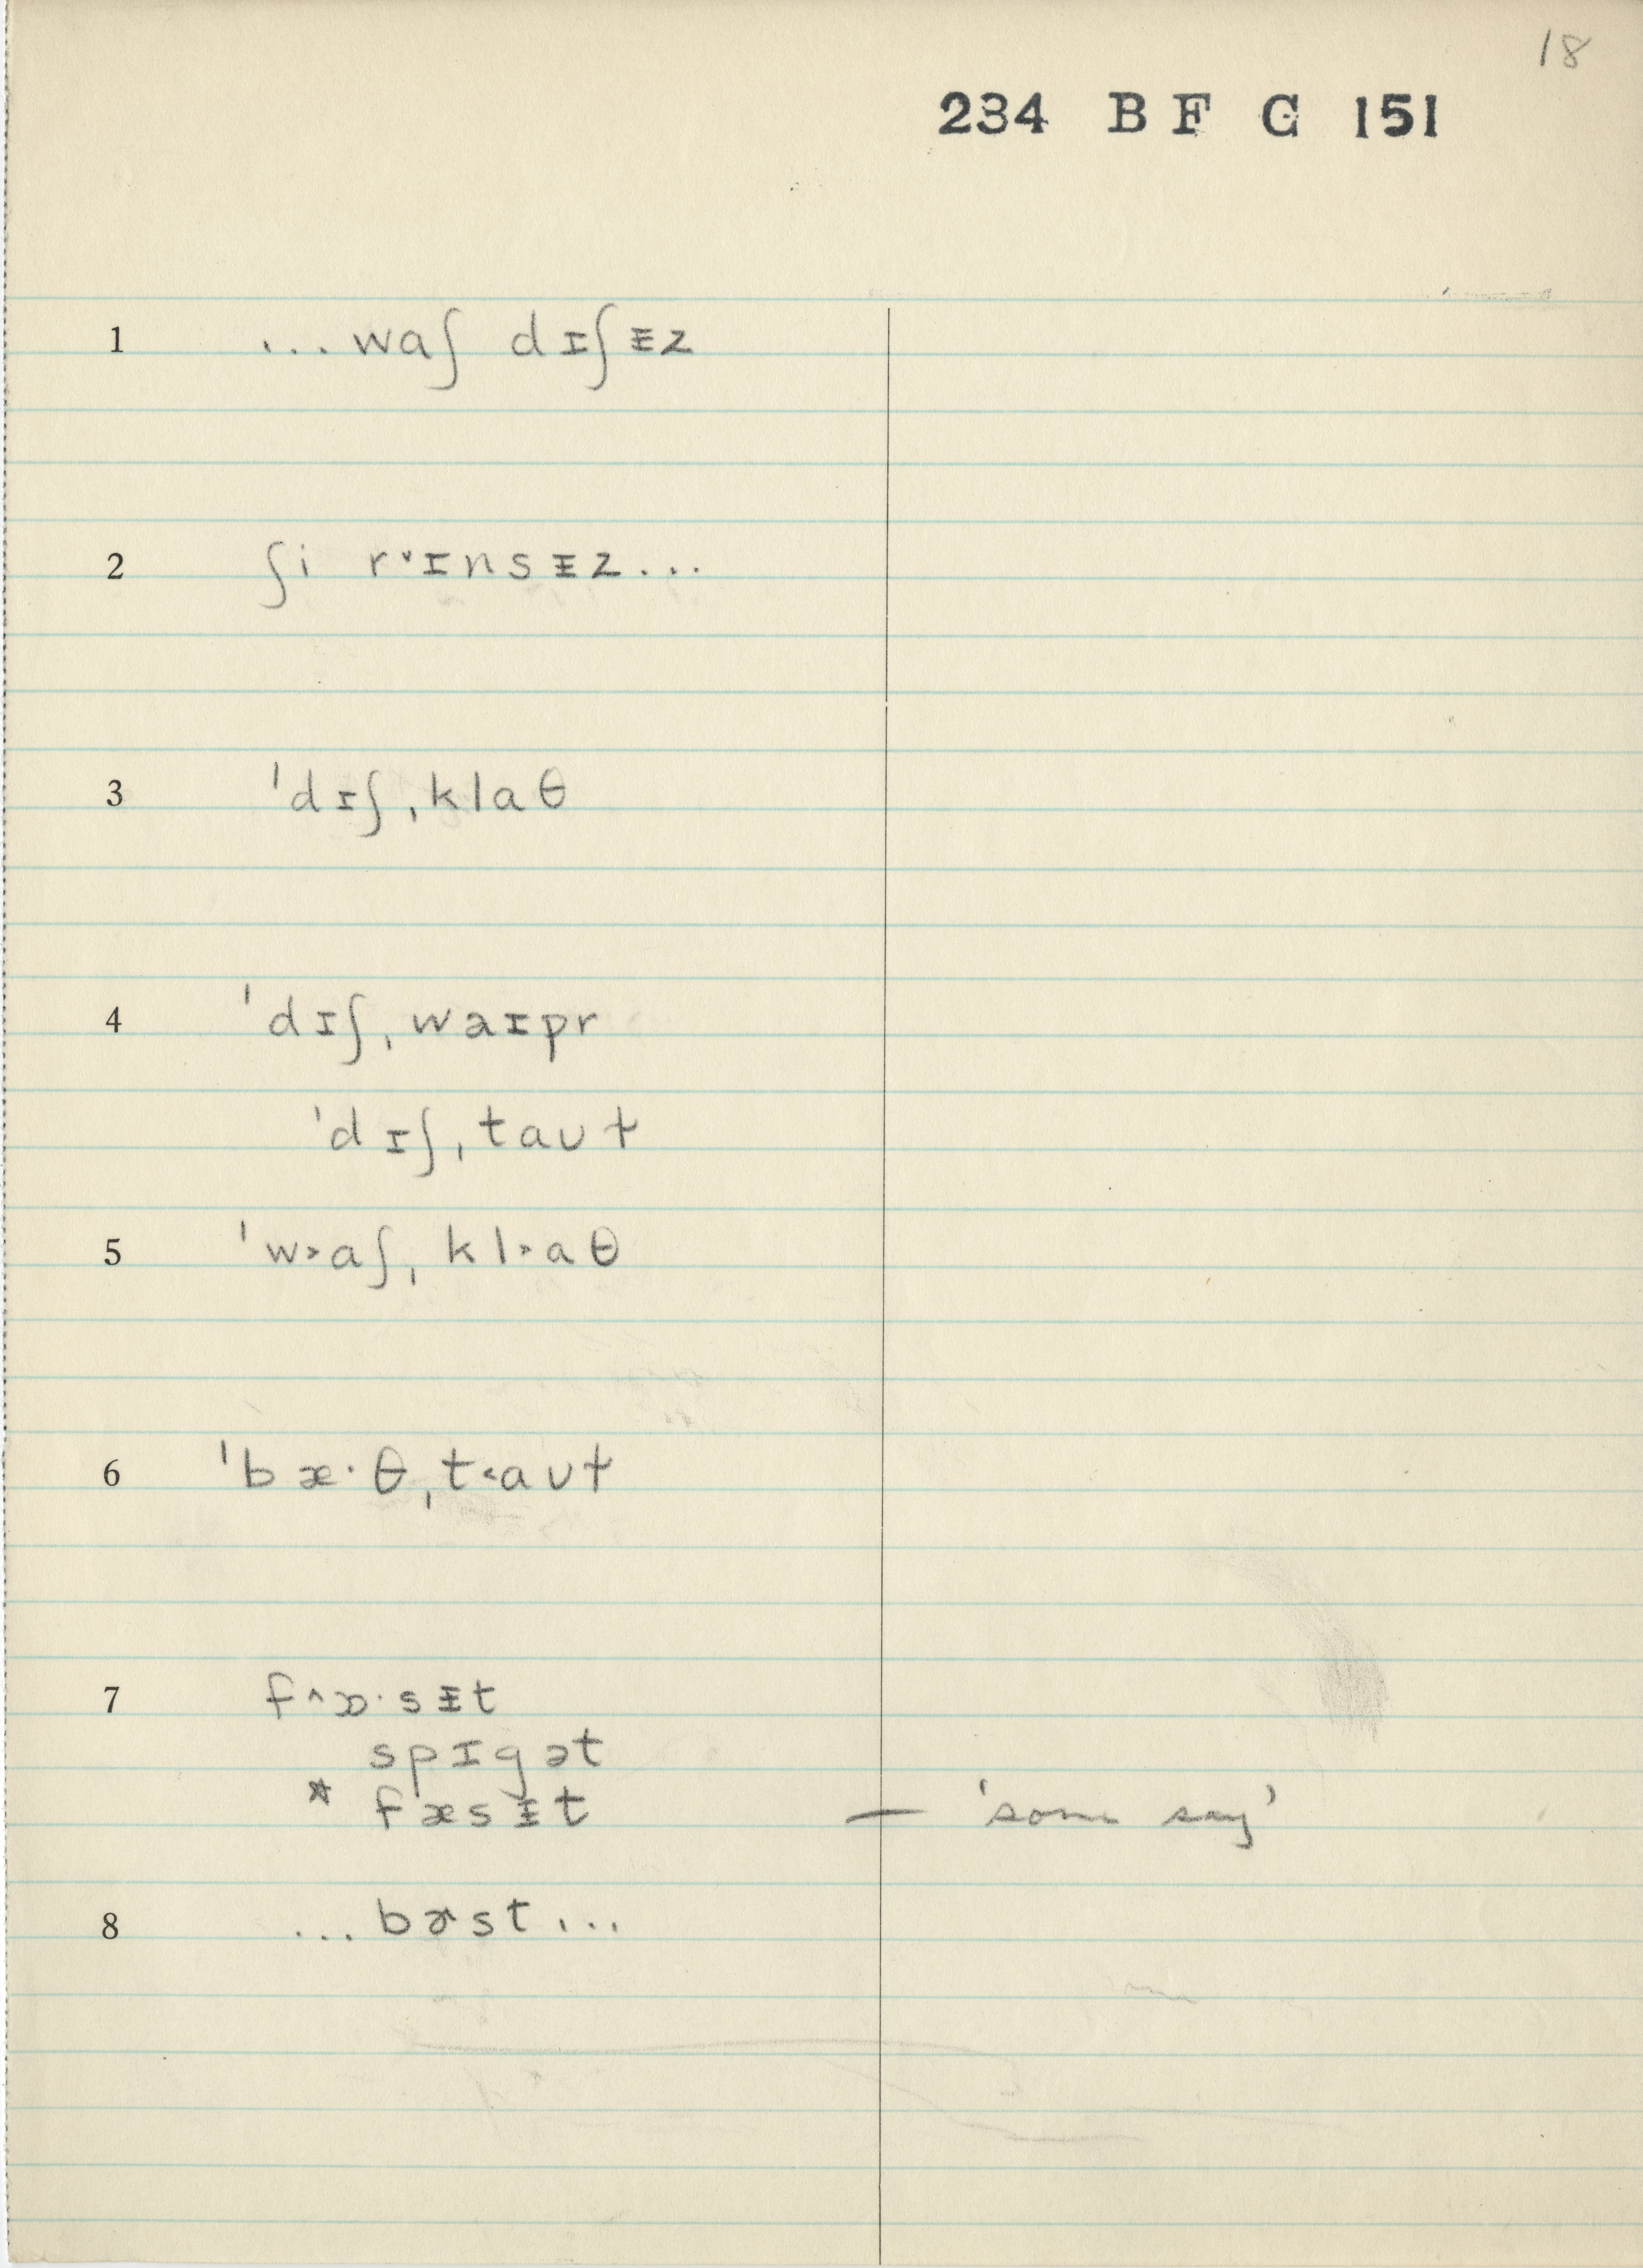 18
234 B F G 151
1 ...waʃ dɪʃᵻz
2 ʃi r˅ɪnsᵻz...
3 ˈdɪʃˌklaθ
4 ˈdɪʃˌwaɪpr
ˈdɪʃˌtaʊɫ
5 ˈw˃aʃˌkl˃aθ
6 ˈbæ·θˌt˂aʊɫ
7 f˄æ·sᵻt
spɪgət
* fæsᵻt — 'some say'
8 ...bɚst...